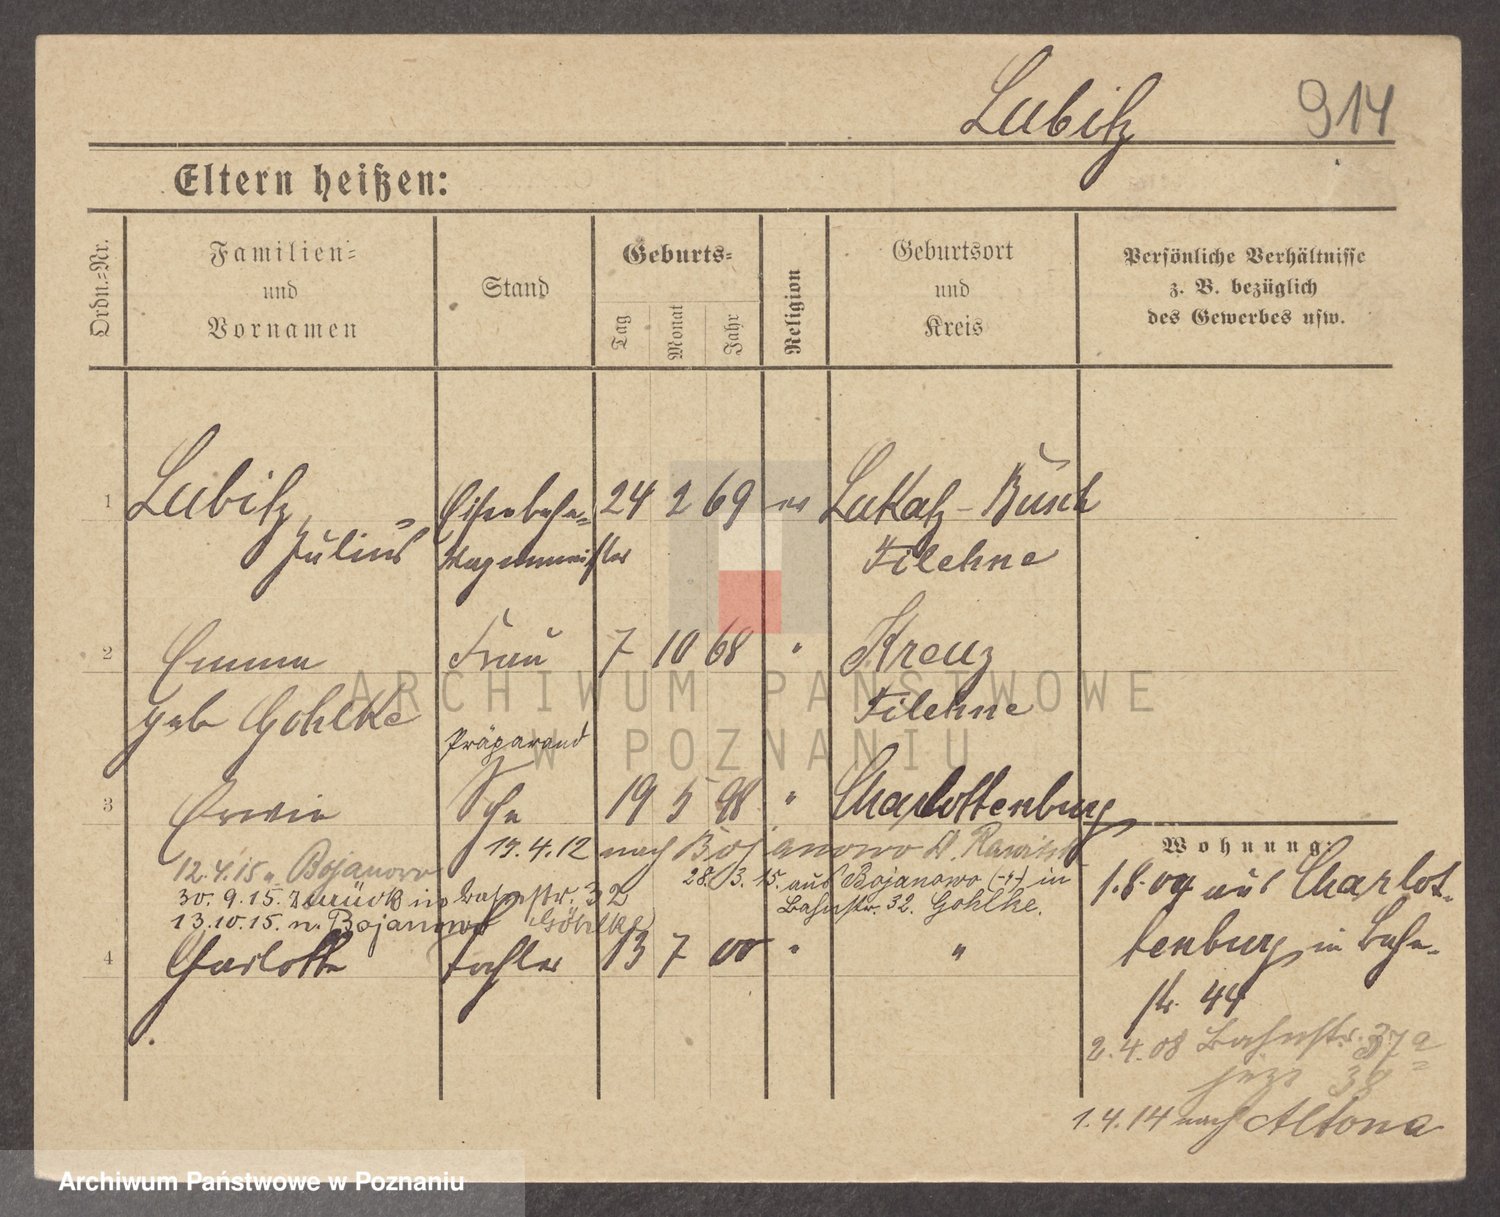 Lubitz 914
Eltern heißen:
Ordn.-Nr.
Familien-
und
Vornamen
Stand
Geburts-
Tag
Monat
Jahr
Religion
Geburtsort
und
Kreis
Persönliche Verhältnisse
z. B. bezüglich
des Gewerbes usw.
1 Lubitz, Eisenbahn- 24 2 69 ev Lukatz-Busch
Julius Wagenmeister Filehne
2 Emma Frau 7 10 68 " Kreuz
geb Gohlke Filehne
Präparand
3 Erwin Sohn 19 5 98 " Charlottenburg
19.4.12 nach Bojanowo Kr. Rawitsch
12.4.15 n. Bojanowo
28. 3. 15. aus Bojanowo in
30. 9. 15. zurück in Bahnstr. 32
Bahnstr. 32. Gohlke.
13. 10. 15. n. Bojanowo (Gohlke)
4 Charlotte Tochter 13 7 00 " "
Wohnung:
1.8.07 aus Charlot-
tenburg in Bahn-
str. 44
2.4.08 Bahnstr. 37a
jezt 38
1. 4. 14 nach Altona
ARCHIWUM PAŃSTWOWE
W POZNANIU
Archiwum Państwowe w Poznaniu